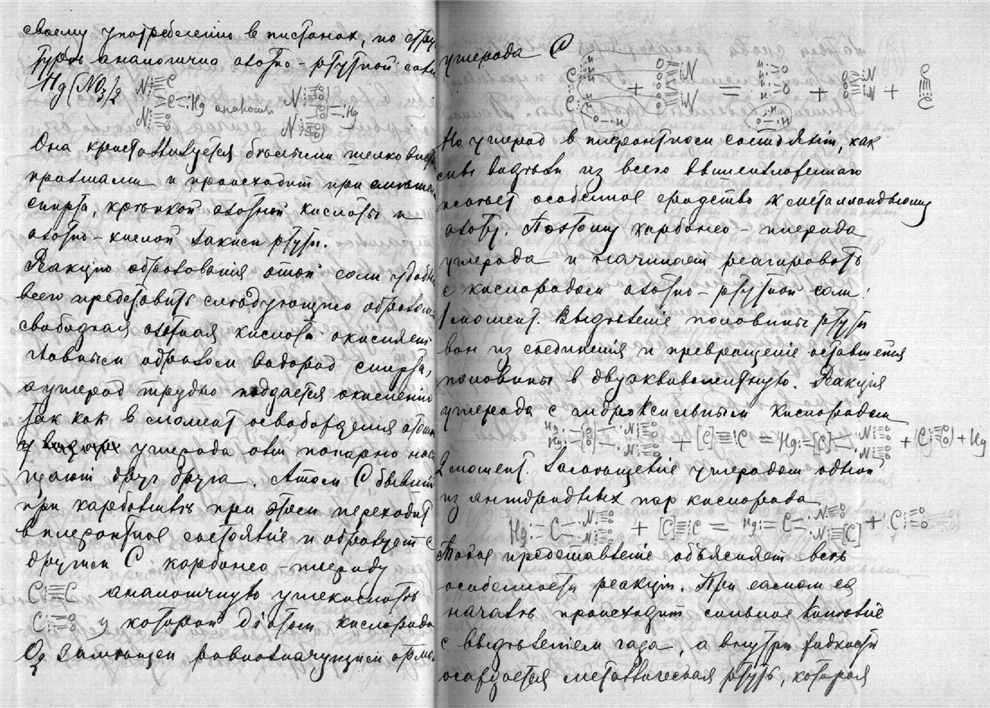 своему употреблению в пистонах, по стру
туре аналогична азотно-ртутной соли
Hg(NO3)2
аналогия
Она кристаллизуется белыми шелковист
призмами и происходит при
спирта, крепкой азотной кислоты и
азотно-кислой закиси ртути.
Реакцию образования этой соли удобн
всего представить следующего образом
свободная азотная кислота окисляет
главным образом водород спирта,
а углерод трудно поддается окислению
так как в момент освобождения атом
углерода они попарно нас
щают друг друга. Атом C бывший
при карбониле при этом переходит
в пиронтное состояние и образует с
другим C карбонео-углероду
C≡C аналогичную углекислоте
у которой 2 атом кислорода
O2 замещен равнозначущим атом
углерода C
+ = + +
Но углерод в пиронтном состоянии, как
мы видели из всего вышеизложенного
имеет особенное сродство к металлоидному
азоту. Поэтому карбонео-углерода
углерода и начинает реагировать
с кислородом азотно-ртутной соли:
1 момент. Выделение половины ртути
вон из соединения и превращение оставшейся
половины в двухэквивалентную. Реакция
углерода с гидроксильным кислородом
+ [C]≡C = + + Hg
2 момент. Поглощение углеродом одной
из ангидридных пар кислорода
+ [C]≡C = +
Такое представление объясняет весь
особенности реакции. При самом её
начале происходит сильное кипение
с выделением газа, а внутри жидкости
осаждается металлическая ртуть, которая